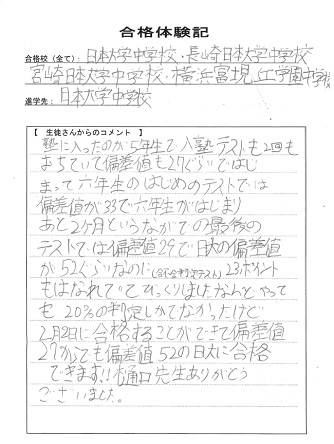 合格体験記
合格校（全て）：日本大学中学校・長崎日本大学中学校
宮崎日本大学中学校・横浜富士見丘学園中学校
進学先：日本大学中学校
【 生徒さんからのコメント 】
塾に入ったのが5年生で入塾テストも2回も
まちていて偏差値も27ぐらいではじ
まって六年生のはじめのテストでは
偏差値が33で六年生がはじまり
あと2ヶ月というなかでの最後の
テストでは偏差値29で日大の偏差値
が52ぐらいなのに(合不合判定テスト)23ポイント
もはなれていてびっくりしましたなんとやって
も20%の判定しかでてなかったけど
2月2日に合格することができて偏差値
27からでも偏差値52の日大に合格
できます!!樋口先生ありがとう
ございました。